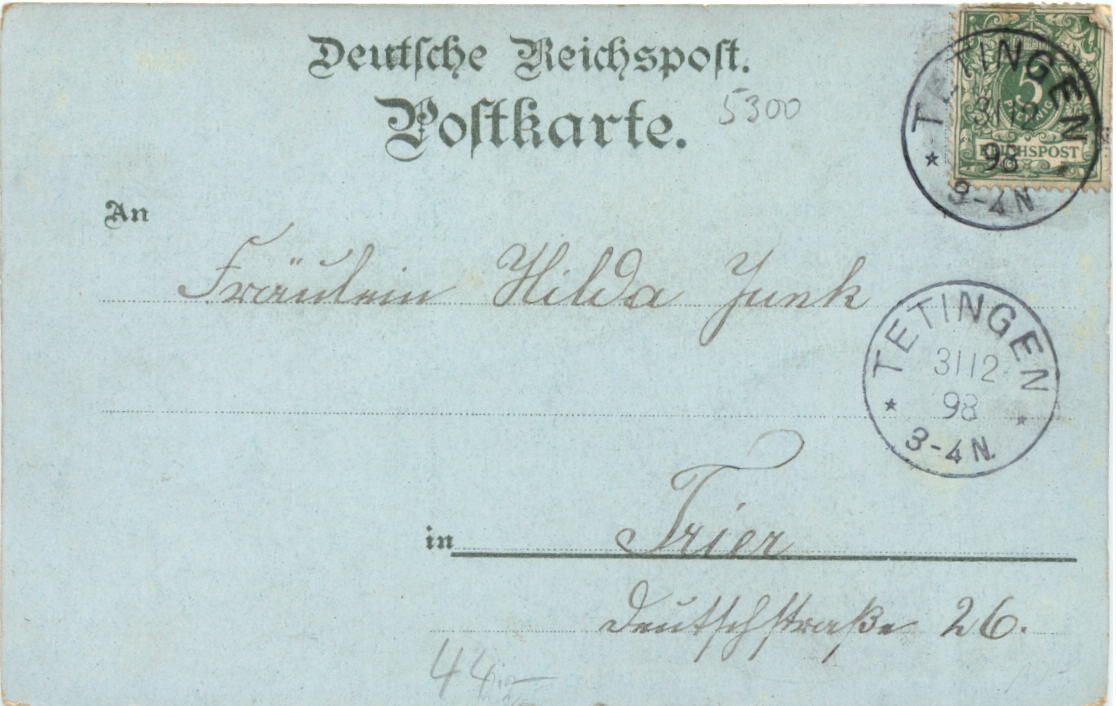 Deutsche Reichspost.
Postkarte.
5300
TETINGEN
31 12
98
3-4 N
5
REICHSPOST
An
Fräulein Hilda Junk
TETINGEN
31 12
98
3-4 N.
in Trier
Deutschstraße 26.
44.-